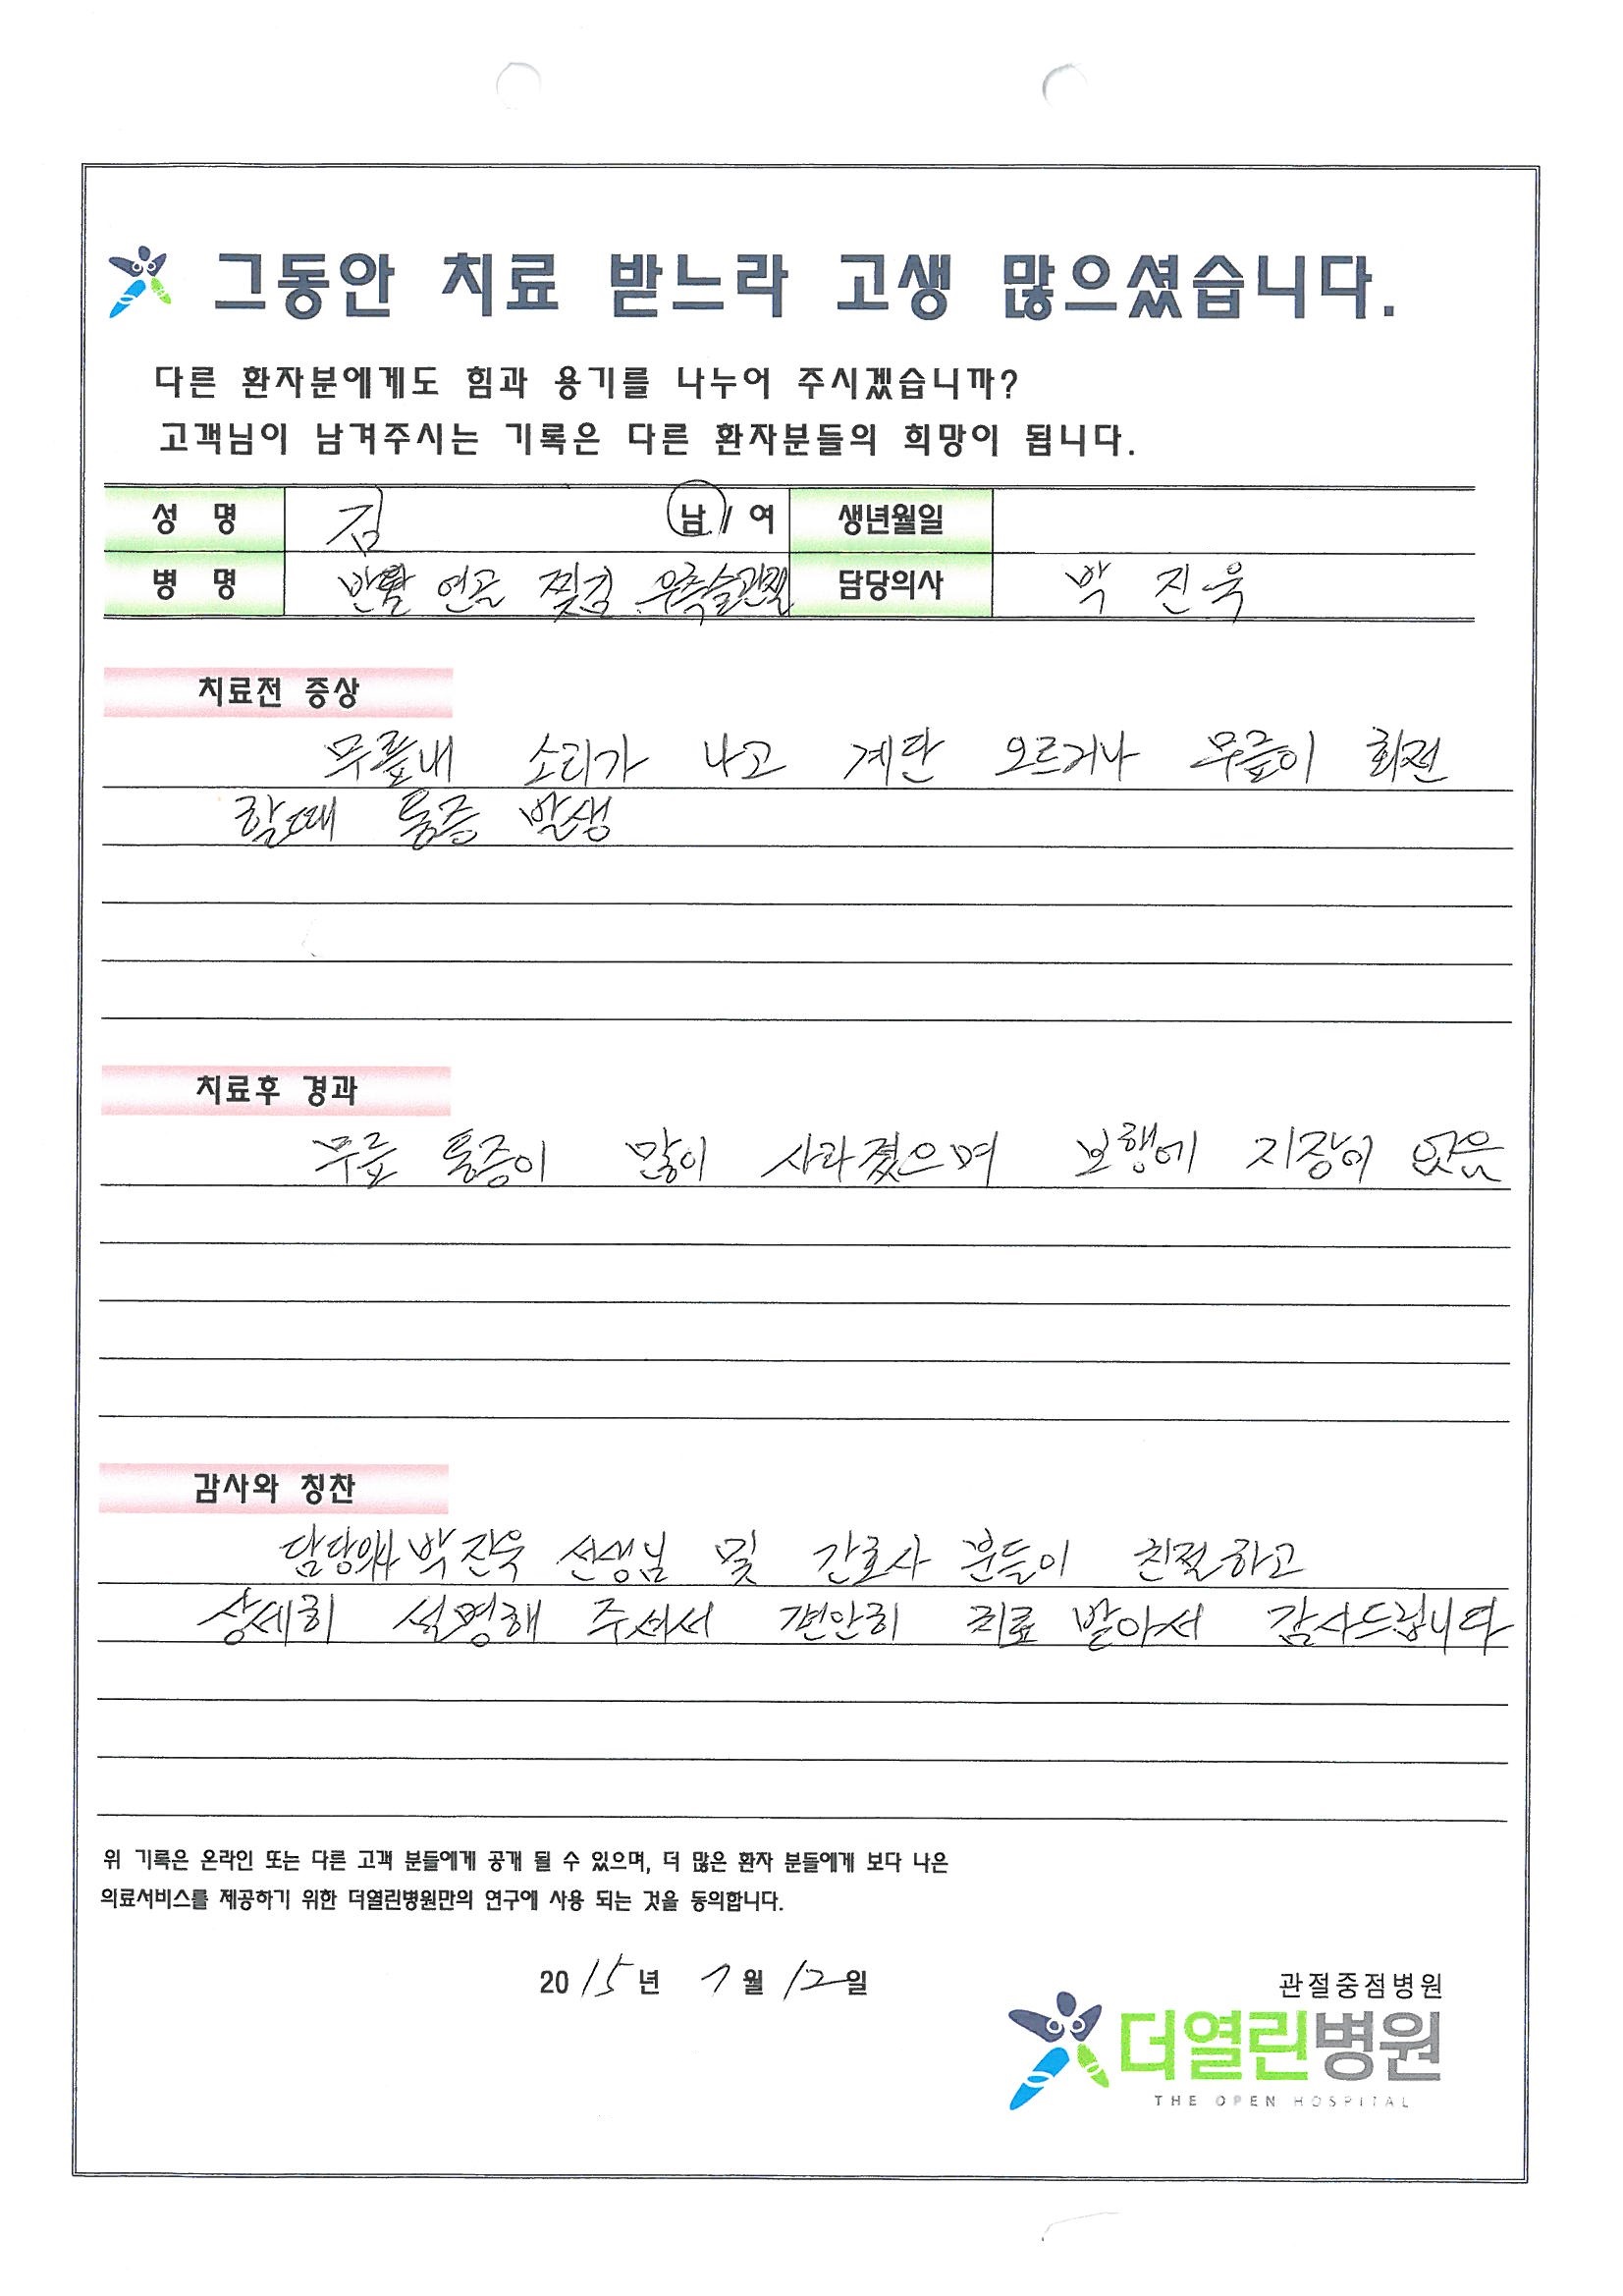 그동안 치료 받느라 고생 많으셨습니다.
다른 환자분에게도 힘과 용기를 나누어 주시겠습니까?
고객님이 남겨주시는 기록은 다른 환자분들의 희망이 됩니다.
성 명 김 남/여 생년월일
병 명 반월 연골 찢김 우측슬관절 담당의사 박 진욱
치료전 증상
무릎내 소리가 나고 계단 오르거나 무릎이 회전
할때 통증 발생
치료후 경과
무릎 통증이 많이 사라졌으며 보행에 지장이 없음
감사와 칭찬
담당의사 박진욱 선생님 및 간호사 분들이 친절하고
상세히 설명해 주셔서 편안히 치료 받아서 감사드립니다
위 기록은 온라인 또는 다른 고객 분들에게 공개 될 수 있으며, 더 많은 환자 분들에게 보다 나은
의료서비스를 제공하기 위한 더열린병원만의 연구에 사용 되는 것을 동의합니다.
2015년 7월 12일
관절중점병원
더열린병원
THE OPEN HOSPITAL